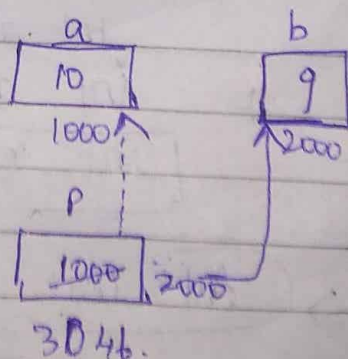 a b
10 9
1000 2000
P
1000 2000
3046.